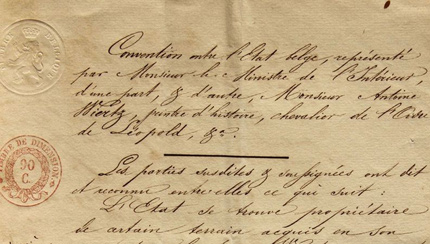 Convention entre l'Etat belge, représenté
par Monsieur le Ministre de l'Intérieur,
d'une part, & d'autre, Monsieur Antoine
Wiertz, peintre d'histoire, chevalier de l'Ordre
de Léopold, &a.
TIMBRE DE DIMENSION
90
C.
Les parties susdites & soussignées ont dit
et reconnu entre elles ce qui suit :
L'Etat se trouve propriétaire
de certain terrain acquis en son